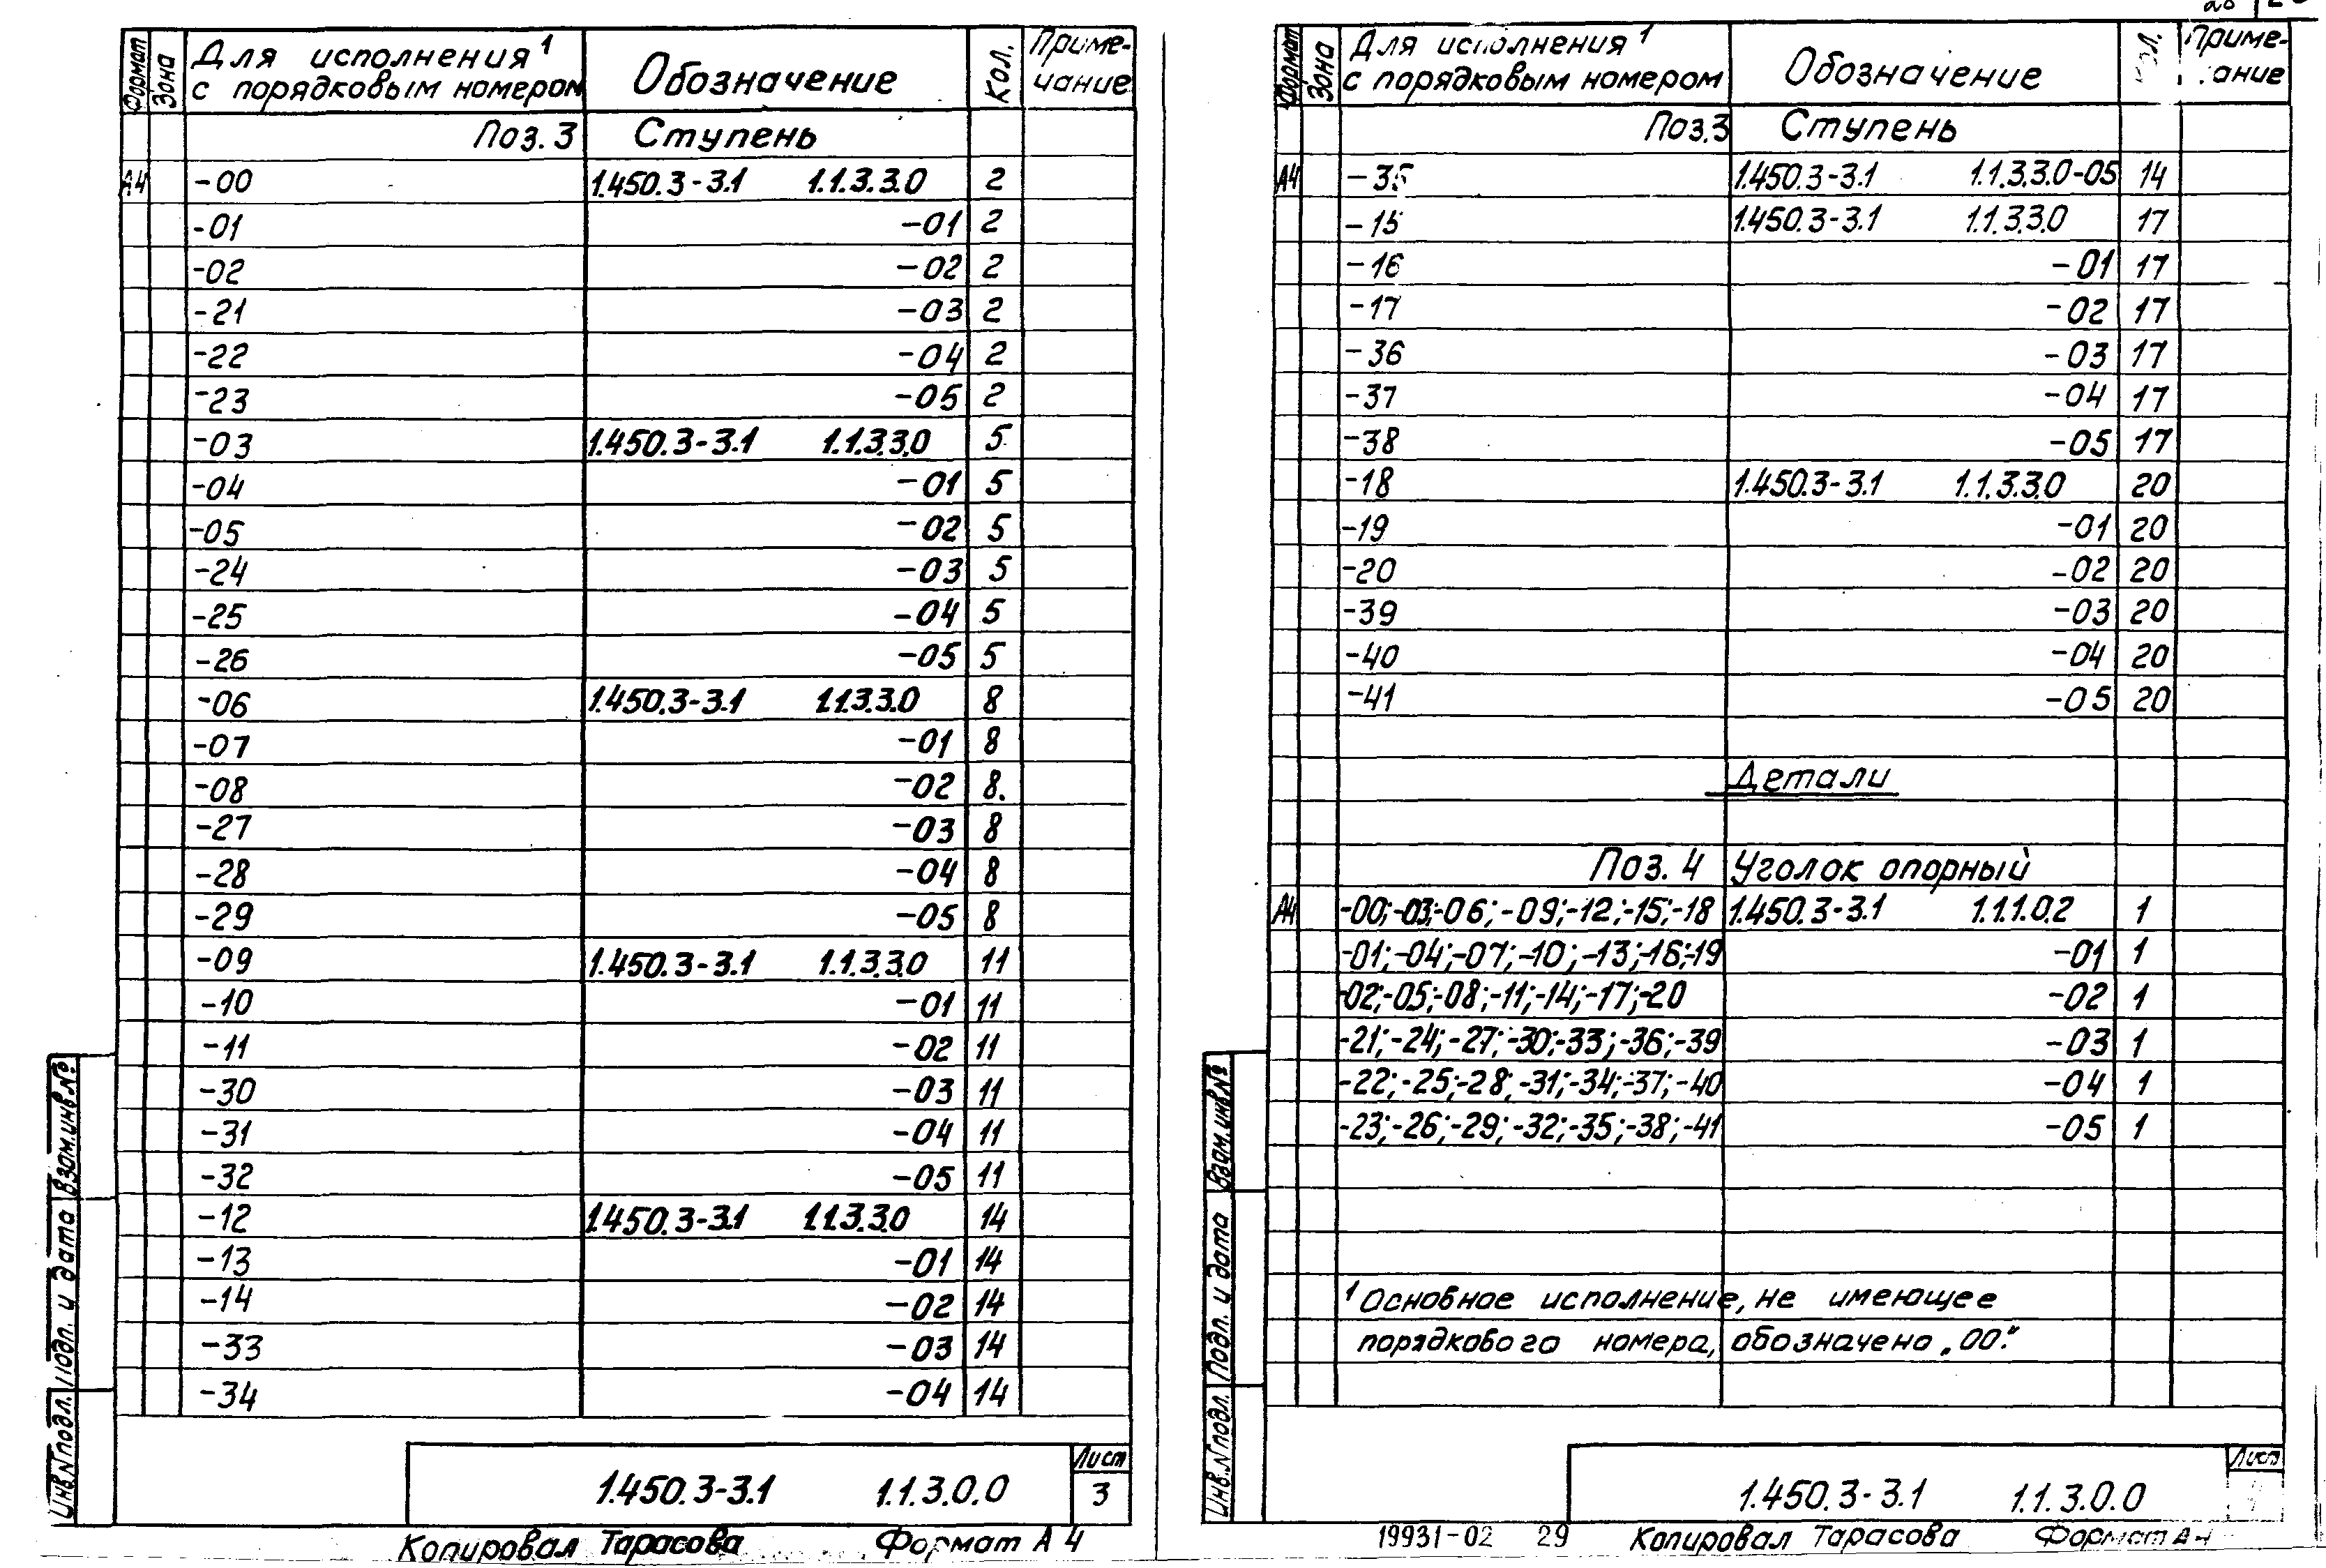 Формат Зона Для исполнения¹ с порядковым номером Обозначение Кол. Приме-
чание
Поз. 3 Ступень
А4 -00 1.450.3-3.1 1.1.3.3.0 2
-01 -01 2
-02 -02 2
-21 -03 2
-22 -04 2
-23 -05 2
-03 1.450.3-3.1 1.1.3.3.0 5
-04 -01 5
-05 -02 5
-24 -03 5
-25 -04 5
-26 -05 5
-06 1.450.3-3.1 1.1.3.3.0 8
-07 -01 8
-08 -02 8.
-27 -03 8
-28 -04 8
-29 -05 8
-09 1.450.3-3.1 1.1.3.3.0 11
-10 -01 11
-11 -02 11
-30 -03 11
-31 -04 11
-32 -05 11
-12 1.450.3-3.1 1.1.3.3.0 14
-13 -01 14
-14 -02 14
-33 -03 14
-34 -04 14
Инв.N подл. Подл. и дата Взам.инв.№
1.450.3-3.1 1.1.3.0.0 Лист
3
Копировал Тарасова Формат А4
Формат Зона Для исполнения¹ с порядковым номером Обозначение Кол. Приме-
чание
Поз.3 Ступень
А4 -35 1.450.3-3.1 1.1.3.3.0-05 14
-15 1.450.3-3.1 1.1.3.3.0 17
-16 -01 17
-17 -02 17
-36 -03 17
-37 -04 17
-38 -05 17
-18 1.450.3-3.1 1.1.3.3.0 20
-19 -01 20
-20 -02 20
-39 -03 20
-40 -04 20
-41 -05 20
Детали
Поз. 4 Уголок опорный
А4 -00;-03;-06;-09;-12;-15;-18 1.450.3-3.1 1.1.1.0.2 1
-01;-04;-07;-10;-13;-16;-19 -01 1
-02;-05;-08;-11;-14;-17;-20 -02 1
-21;-24;-27;-30;-33;-36;-39 -03 1
-22;-25;-28;-31;-34;-37;-40 -04 1
-23;-26;-29;-32;-35;-38;-41 -05 1
¹ Основное исполнение, не имеющее
порядкового номера, обозначено „00".
Инв.N подл. Подл. и дата Взам.инв.№
1.450.3-3.1 1.1.3.0.0 Лист
19931-02 29 Копировал Тарасова Формат А4